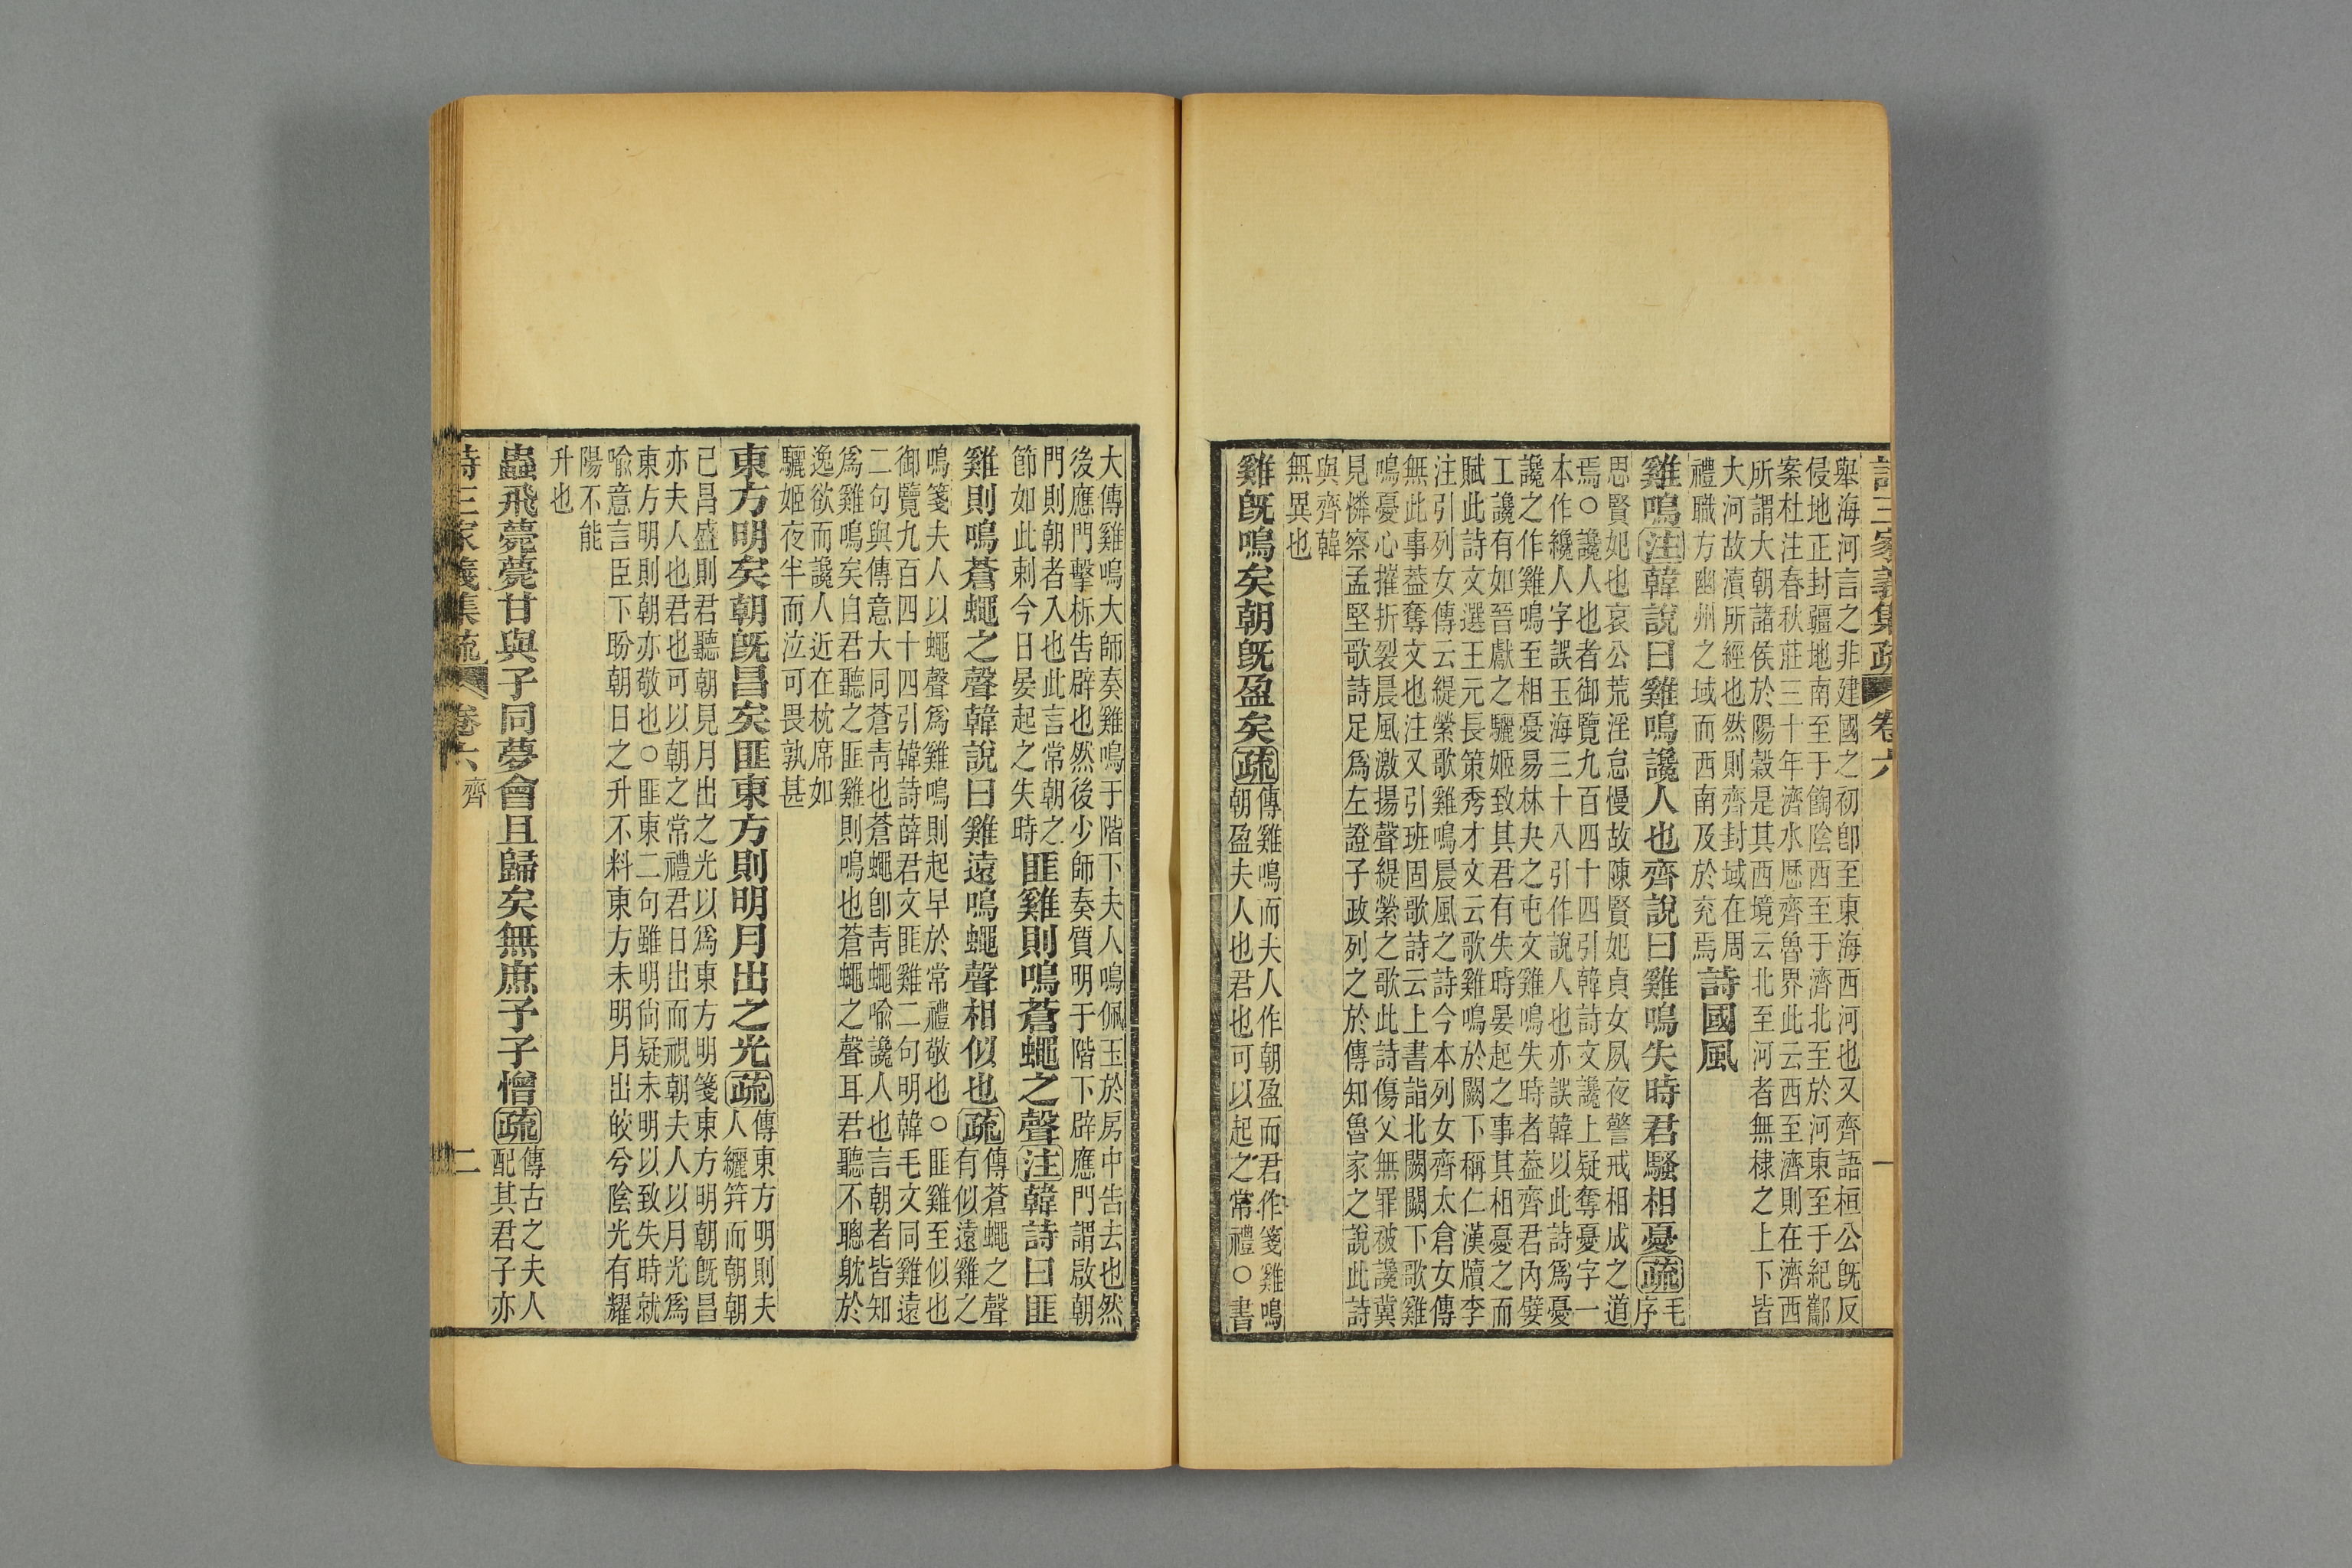 詩三家義集疏 卷六 一
舉海河言之非建國之初卽至東海西河也又齊語桓公旣反
侵地正封疆地南至于䧟陰西至于濟北至於河東至于紀酅
案杜注春秋莊三十年濟水歴齊魯界此云西至濟則在濟西
所謂大朝諸侯於陽穀是其西境云北至河者無棣之上下皆
大河故瀆所經也然則齊封域在周
禮職方幽州之域而西南及於兖焉
詩國風
雞鳴注韓說曰雞鳴讒人也齊說曰雞鳴失時君騷相憂疏毛序
思賢妃也哀公荒淫怠慢故陳賢妃貞女夙夜警戒相成之道
焉○讒人也者御覽九百四十四引韓詩文讒上疑奪憂字一
本作纔人字誤玉海三十八引作說人也亦誤韓以此詩爲憂
讒之作雞鳴至相憂易林夬之屯文雞鳴失時者葢齊君內嬖
工讒有如晉獻之驪姬致其君有失時晏起之事其相憂之而
賦此詩文選王元長策秀才文云歌雞鳴於闕下稱仁漢牘李
注引列女傳云緹縈歌雞鳴晨風之詩今本列女齊太倉女傳
無此事葢奪文也注又引班固歌詩云上書詣北闕闕下歌雞
鳴憂心摧折裂晨風激揚聲緹縈之歌此詩傷父無罪被讒冀
見憐察孟堅歌詩足爲左證子政列之於傳知魯家之說此詩
與齊韓
無異也
雞旣鳴矣朝旣盈矣疏傳雞鳴而夫人作朝盈而君作箋雞鳴
朝盈夫人也君也可以起之常禮○書
大傳雞鳴大師奏雞鳴于階下夫人鳴佩玉於房中告去也然
後應門擊柝告辟也然後少師奏質明于階下辟應門謂啟朝
門則朝者入也此言常朝之
節如此刺今日晏起之失時
匪雞則鳴蒼蠅之聲注韓詩曰匪
雞則鳴蒼蠅之聲韓說曰雞遠鳴蠅聲相似也疏傳蒼蠅之聲
有似遠雞之
鳴箋夫人以蠅聲爲雞鳴則起早於常禮敬也○匪雞至似也
御覽九百四十四引韓詩薛君文匪雞二句明韓毛文同雞遠
二句與傳意大同蒼靑也蒼蠅卽靑蠅喻讒人也言朝者皆知
爲雞鳴矣自君聽之匪雞則鳴也蒼蠅之聲耳君聽不聰躭於
逸欲而讒人近在枕席如
驪姬夜半而泣可畏孰甚
東方明矣朝旣昌矣匪東方則明月出之光疏傳東方明則夫
人纚笄而朝朝
已昌盛則君聽朝見月出之光以爲東方明箋東方明朝旣昌
亦夫人也君也可以朝之常禮君日出而視朝夫人以月光爲
東方明則朝亦敬也○匪東二句雖明尙疑未明以致失時就
喻意言臣下盼朝日之升不料東方未明月出皎兮陰光有耀
陽不能
升也
蟲飛薨薨甘與子同夢會且歸矣無庶予子憎疏傳古之夫人
配其君子亦
詩三家義集疏 卷六 齊 二